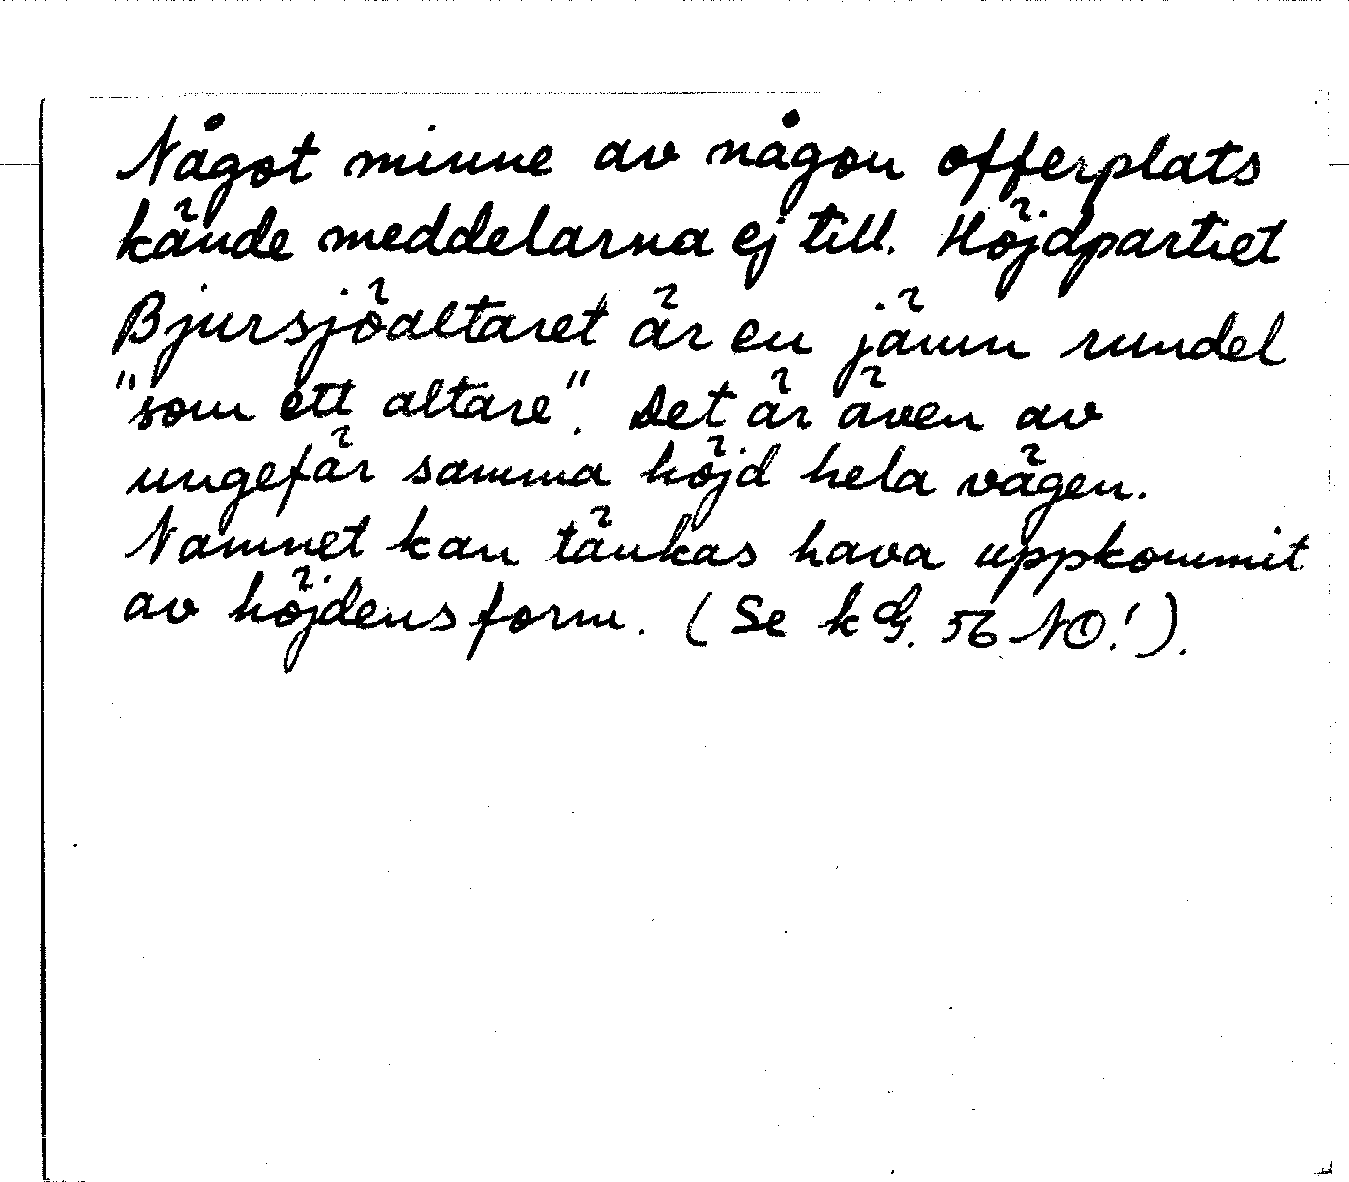 Något minne av någon offerplats
kände meddelarna ej till. Höjdpartiet
Bjursjöaltaret är en jämn rundel
"som ett altare". Det är även av
ungefär samma höjd hela vägen.
Namnet kan tänkas hava uppkommit
av höjdens form. (Se k G. 56 NO!).